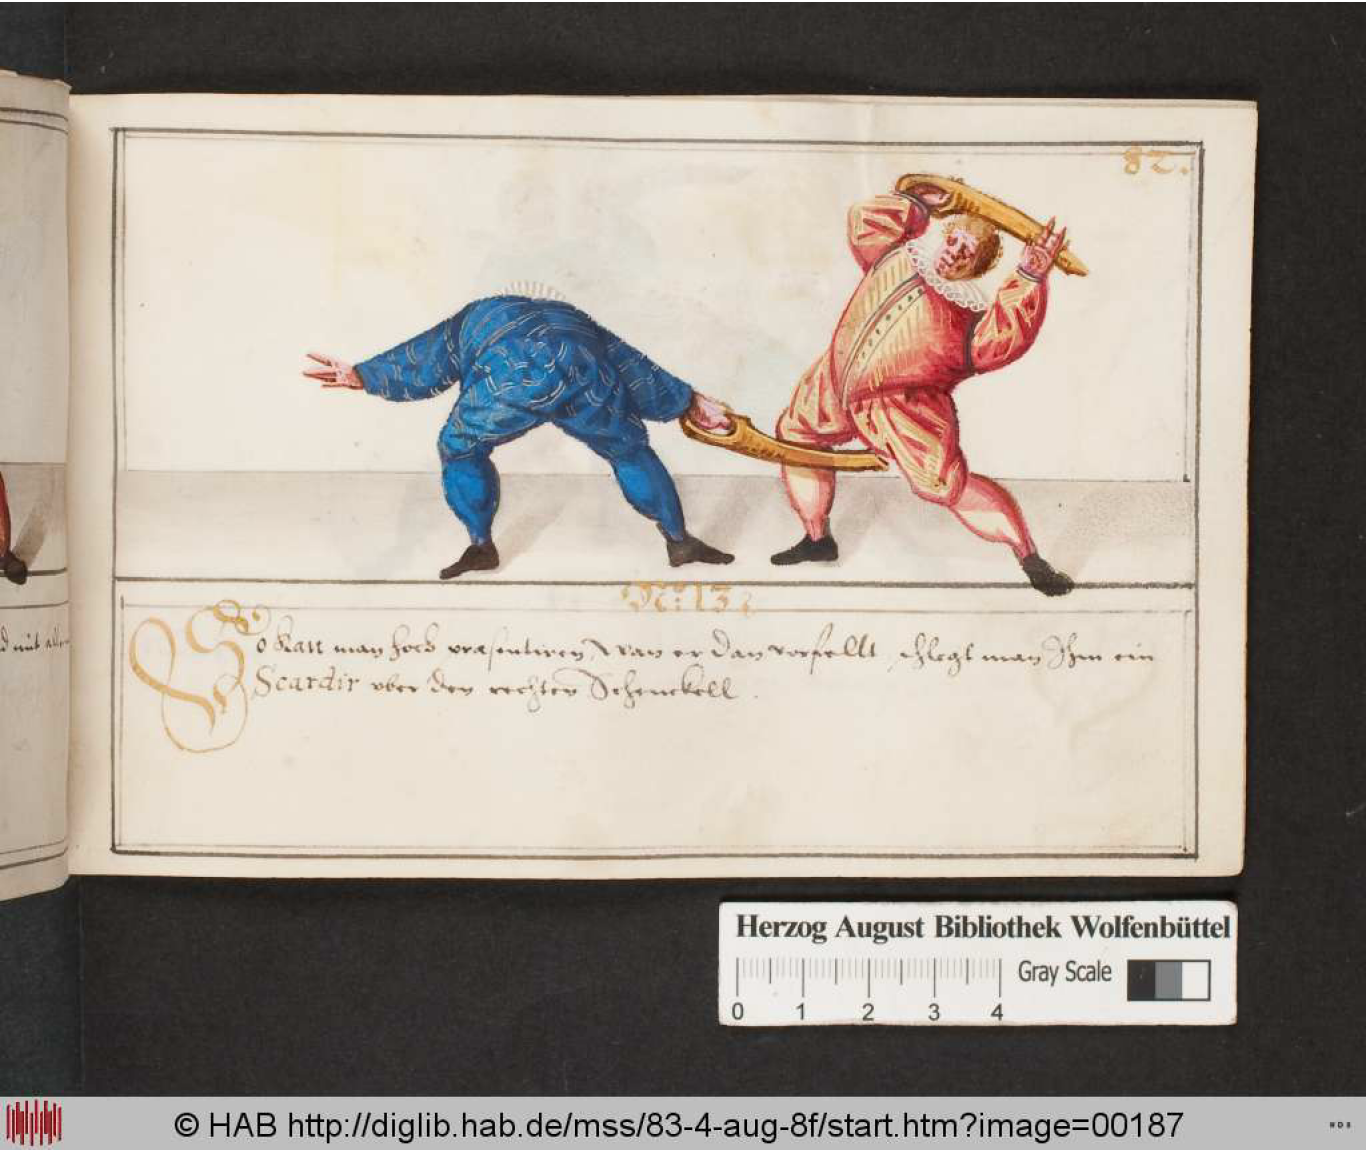 82.
d mit alle
No: 13 ?
So kan man hoch præsentiren, wan er dan vorfellt, schlegt man Ihm ein
Scardir vber den rechten Schenckell.
Herzog August Bibliothek Wolfenbüttel
Gray Scale
0 1 2 3 4
© HAB http://diglib.hab.de/mss/83-4-aug-8f/start.htm?image=00187